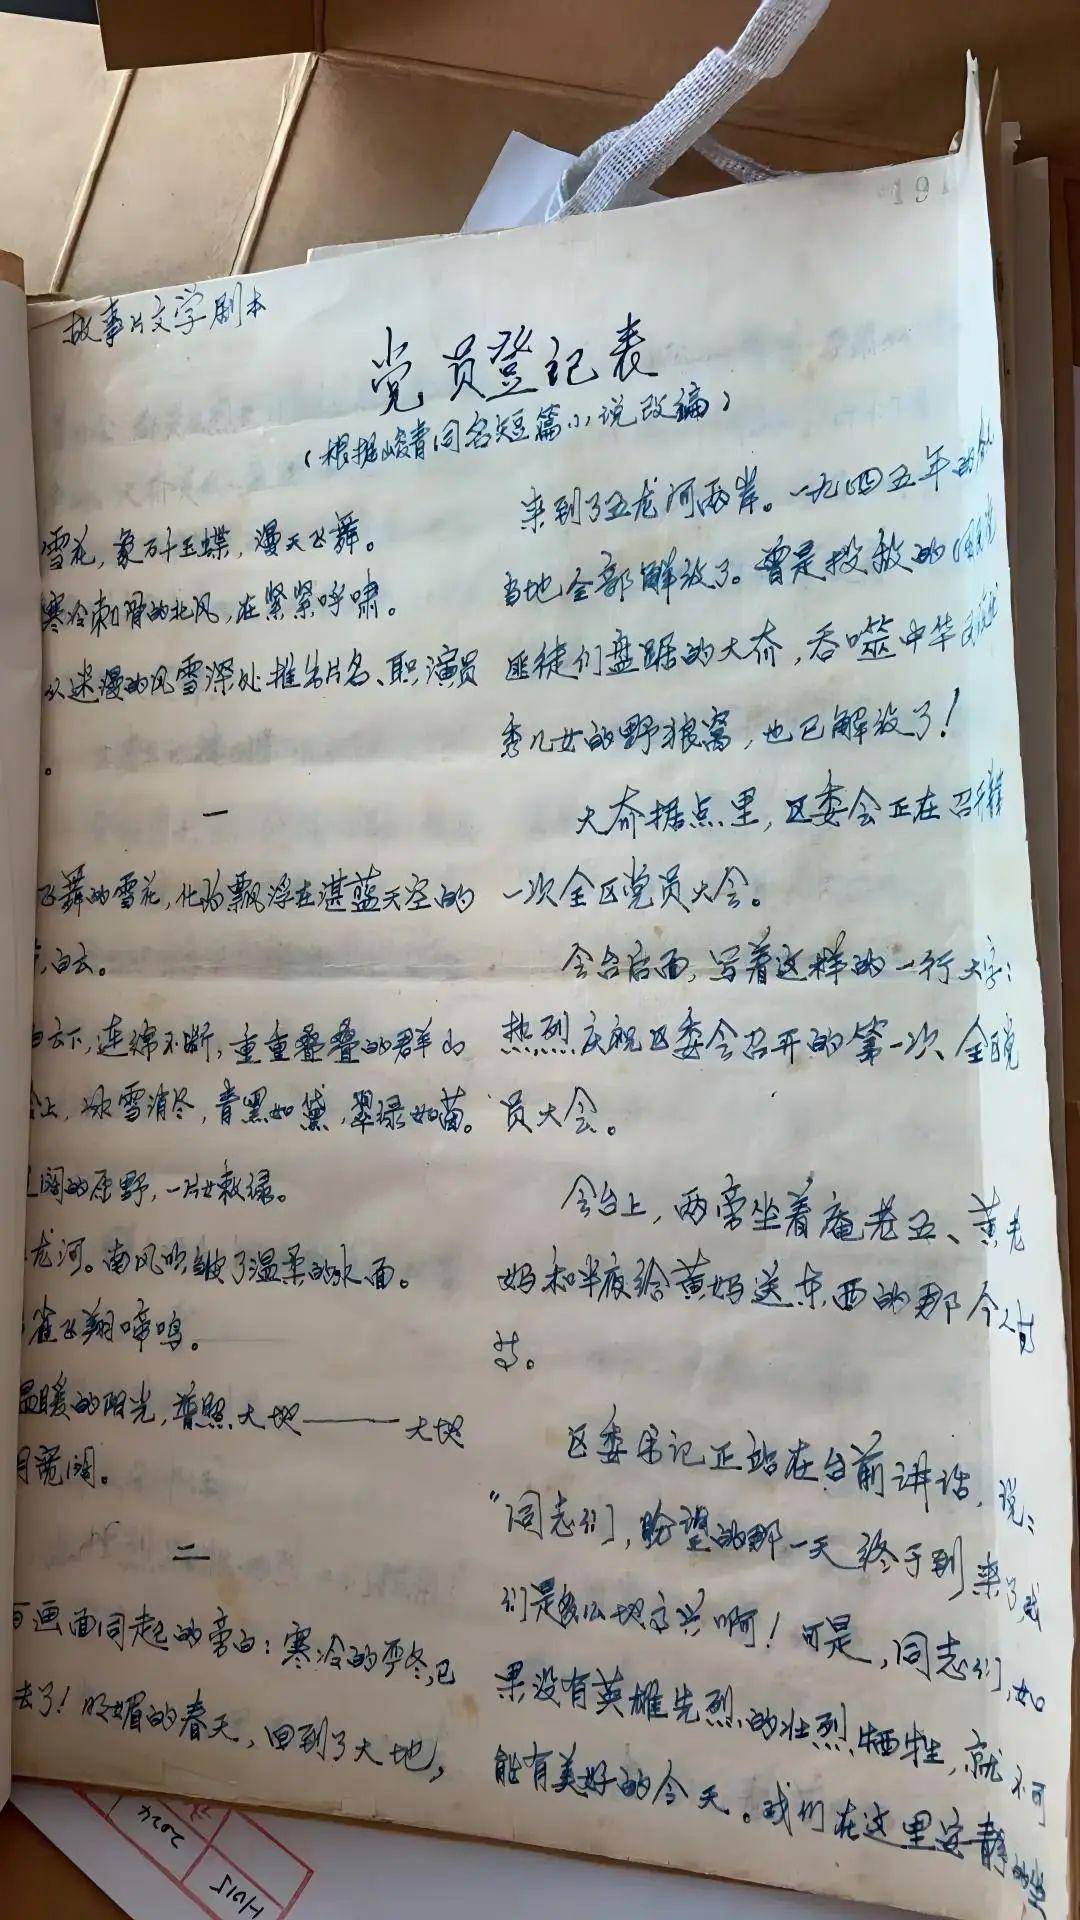 191
故事片文学剧本
党员登记表
（根据峻青同名短篇小说改编）
雪花，象万千玉蝶，漫天飞舞。
寒冷刺骨的北风，在紧紧呼啸。
从迷漫的风雪深处推出片名、职演员
。
一
飞舞的雪花，化为飘浮在湛蓝天空的
白云。
白云下，连绵不断，重重叠叠的群山
上，冰雪消冬，青黑如黛，翠绿如茵。
阔的原野，一片嫩绿。
龙河。南风吹皱了温柔的水面。
雀飞翔啼鸣。
温暖的阳光，普照大地——大地
宽阔。
二
画面同起的旁白：寒冷的严冬，已
去了！明媚的春天，回到了大地，
来到了五龙河两岸。一九四五年的
当地全部解放了。曾是投敌的
匪徒们盘踞的大夼，吞噬中华
秀儿女的野狼窝，也已解放了！
大夼据点里，区委会正在召开
一次全区党员大会。
会台后面，写着这样的一行大字：
热烈庆祝区委会召开的第一次、全区党
员大会。
会台上，两旁坐着庵老五、黄老
妈和半夜给黄妈送东西的那个
区委书记正站在台前讲话，说：
“同志们，盼望的那一天终于到来了
们是多么地高兴啊！可是，同志们，如
果没有英雄先烈的壮烈牺牲，就不可
能有美好的今天。我们在这里安静的坐
2024